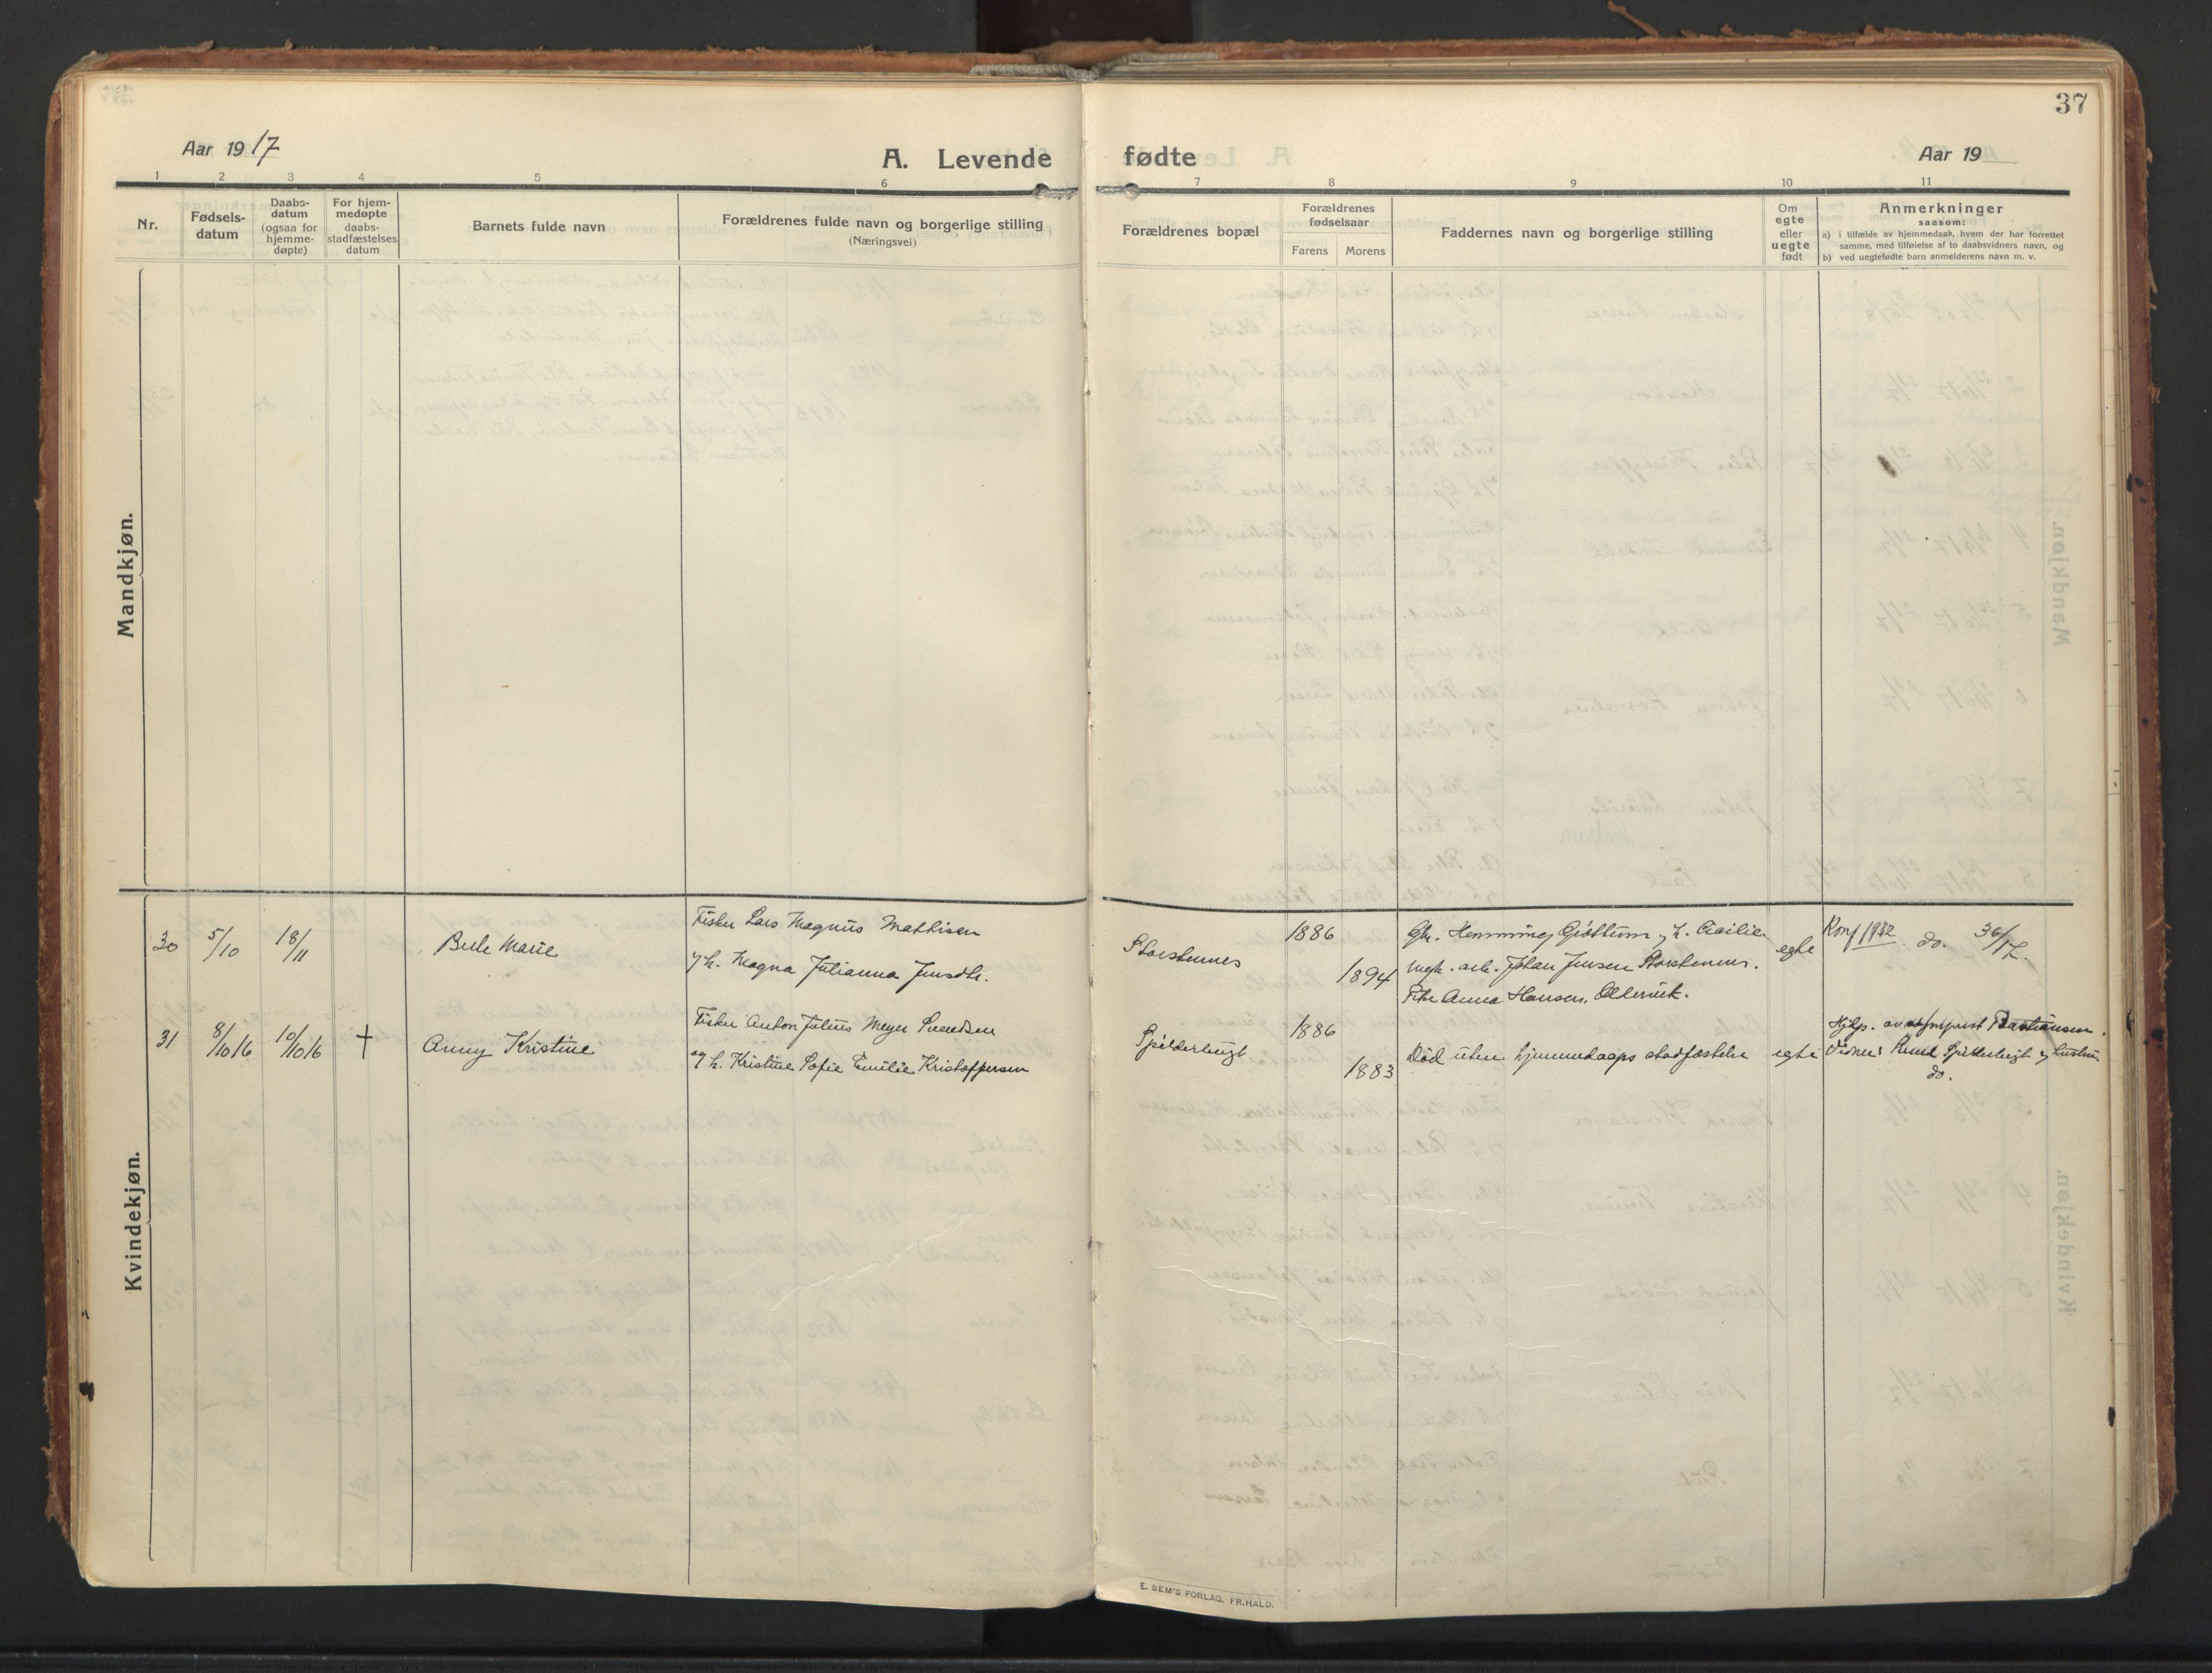 37
Aar 1917
A. Levende fødte
Aar 19
1 2 3 4 5 6 7 8 9 10 11
Nr.
Fødsels-
datum
Daabs-
datum
(ogsaa for
hjemme-
døpte)
For hjem-
medøpte
daabs-
stadfæstelses
datum
Barnets fulde navn
Forældrenes fulde navn og borgerlige stilling
(Næringsvei)
Forældrenes bopæl
Forældrenes
fødselsaar
Farens Morens
Faddernes navn og borgerlige stilling
Om
egte
eller
uegte
født
Anmerkninger
saasom:
a) i tilfælde av hjemmedaab, hvem der har forrettet
samme, med tilføielse af to daabsvidners navn, og
b) ved uegtefødte barn anmelderens navn m. v.
Mandkjøn.
Kvindekjøn.
30 5/10 18/11
Marie
Fisker Lars Magnus Mathisen
og h. Magna Julianna Jensdtr.
Storstennes
1886
1894
Gbr. Hemming Gjøttum og h. Cecilie
Ungk. arb. Johan Jensen Storstennes.
Pike Anna Hansen, Oldervik.
egte
Konf 1932 do.
31 8/10 16 10/10 16 †
Anny Kristine
Fisker Anton Julius Meyer Svendsen
og h. Kristine Sofie Emilie Kristoffersen
Spilderbugt
1886
1883
Død uten hjemmedaaps stadfæstelse
egte
Hjdp. av Bastiansen.
Vidner: Spilderbugt og hustru
do.
E. SEM'S FORLAG, FR.HALD.